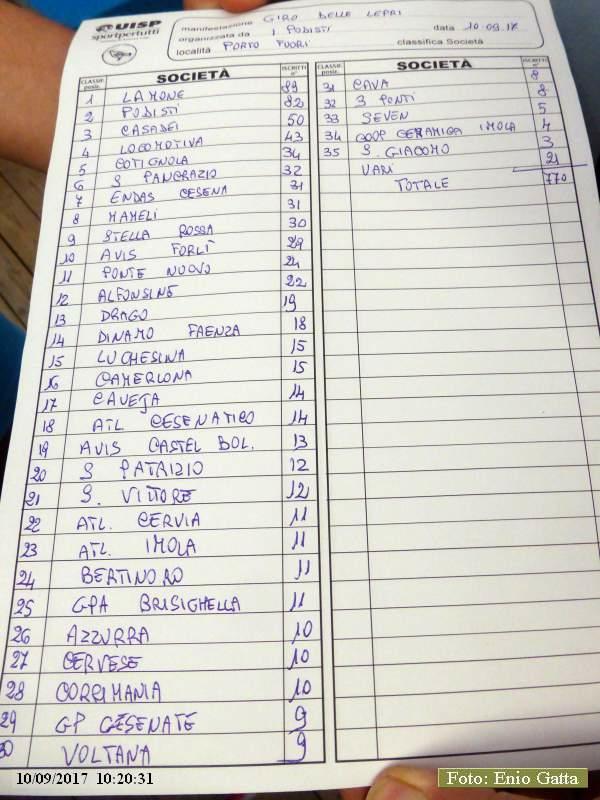 UISP
sportpertutti
manifestazione GIRO DELLE LEPRI
organizzata da I PODISTI data 10.09.17
località PORTO FUORI classifica Società
CLASSIF. posiz. SOCIETÀ ISCRITTI n°
1 LAMONE 89
2 PODISTI 82
3 CASADEI 50
4 LOCOMOTIVA 43
5 COTIGNOLA 34
6 S PANCRAZIO 32
7 ENDAS CESENA 31
8 MAMELI 31
9 STELLA ROSSA 30
10 AVIS FORLÌ 29
11 PONTE NUOVO 24
12 ALFONSINE 22
13 DRAGO 19
14 DINAMO FAENZA 18
15 LUCHESINA 15
16 CAMERLONA 15
17 CAVEJA 14
18 ATL CESENATICO 14
19 AVIS CASTEL BOL. 13
20 S PATRIZIO 12
21 S. VITTORE 12
22 ATL. CERVIA 11
23 ATL. IMOLA 11
24 BERTINORO 11
25 GPA BRISIGHELLA 11
26 AZZURRA 10
27 CERVESE 10
28 CORRIMANIA 10
29 GP CESENATE 9
30 VOLTANA 9
CLASSIF. posiz. SOCIETÀ ISCRITTI n°
31 CAVA 8
32 3 PONTI 8
33 SEVEN 5
34 COOP CERAMICA IMOLA 4
35 S. GIACOMO 3
VARI 21
TOTALE 770
10/09/2017 10:20:31
Foto: Enio Gatta